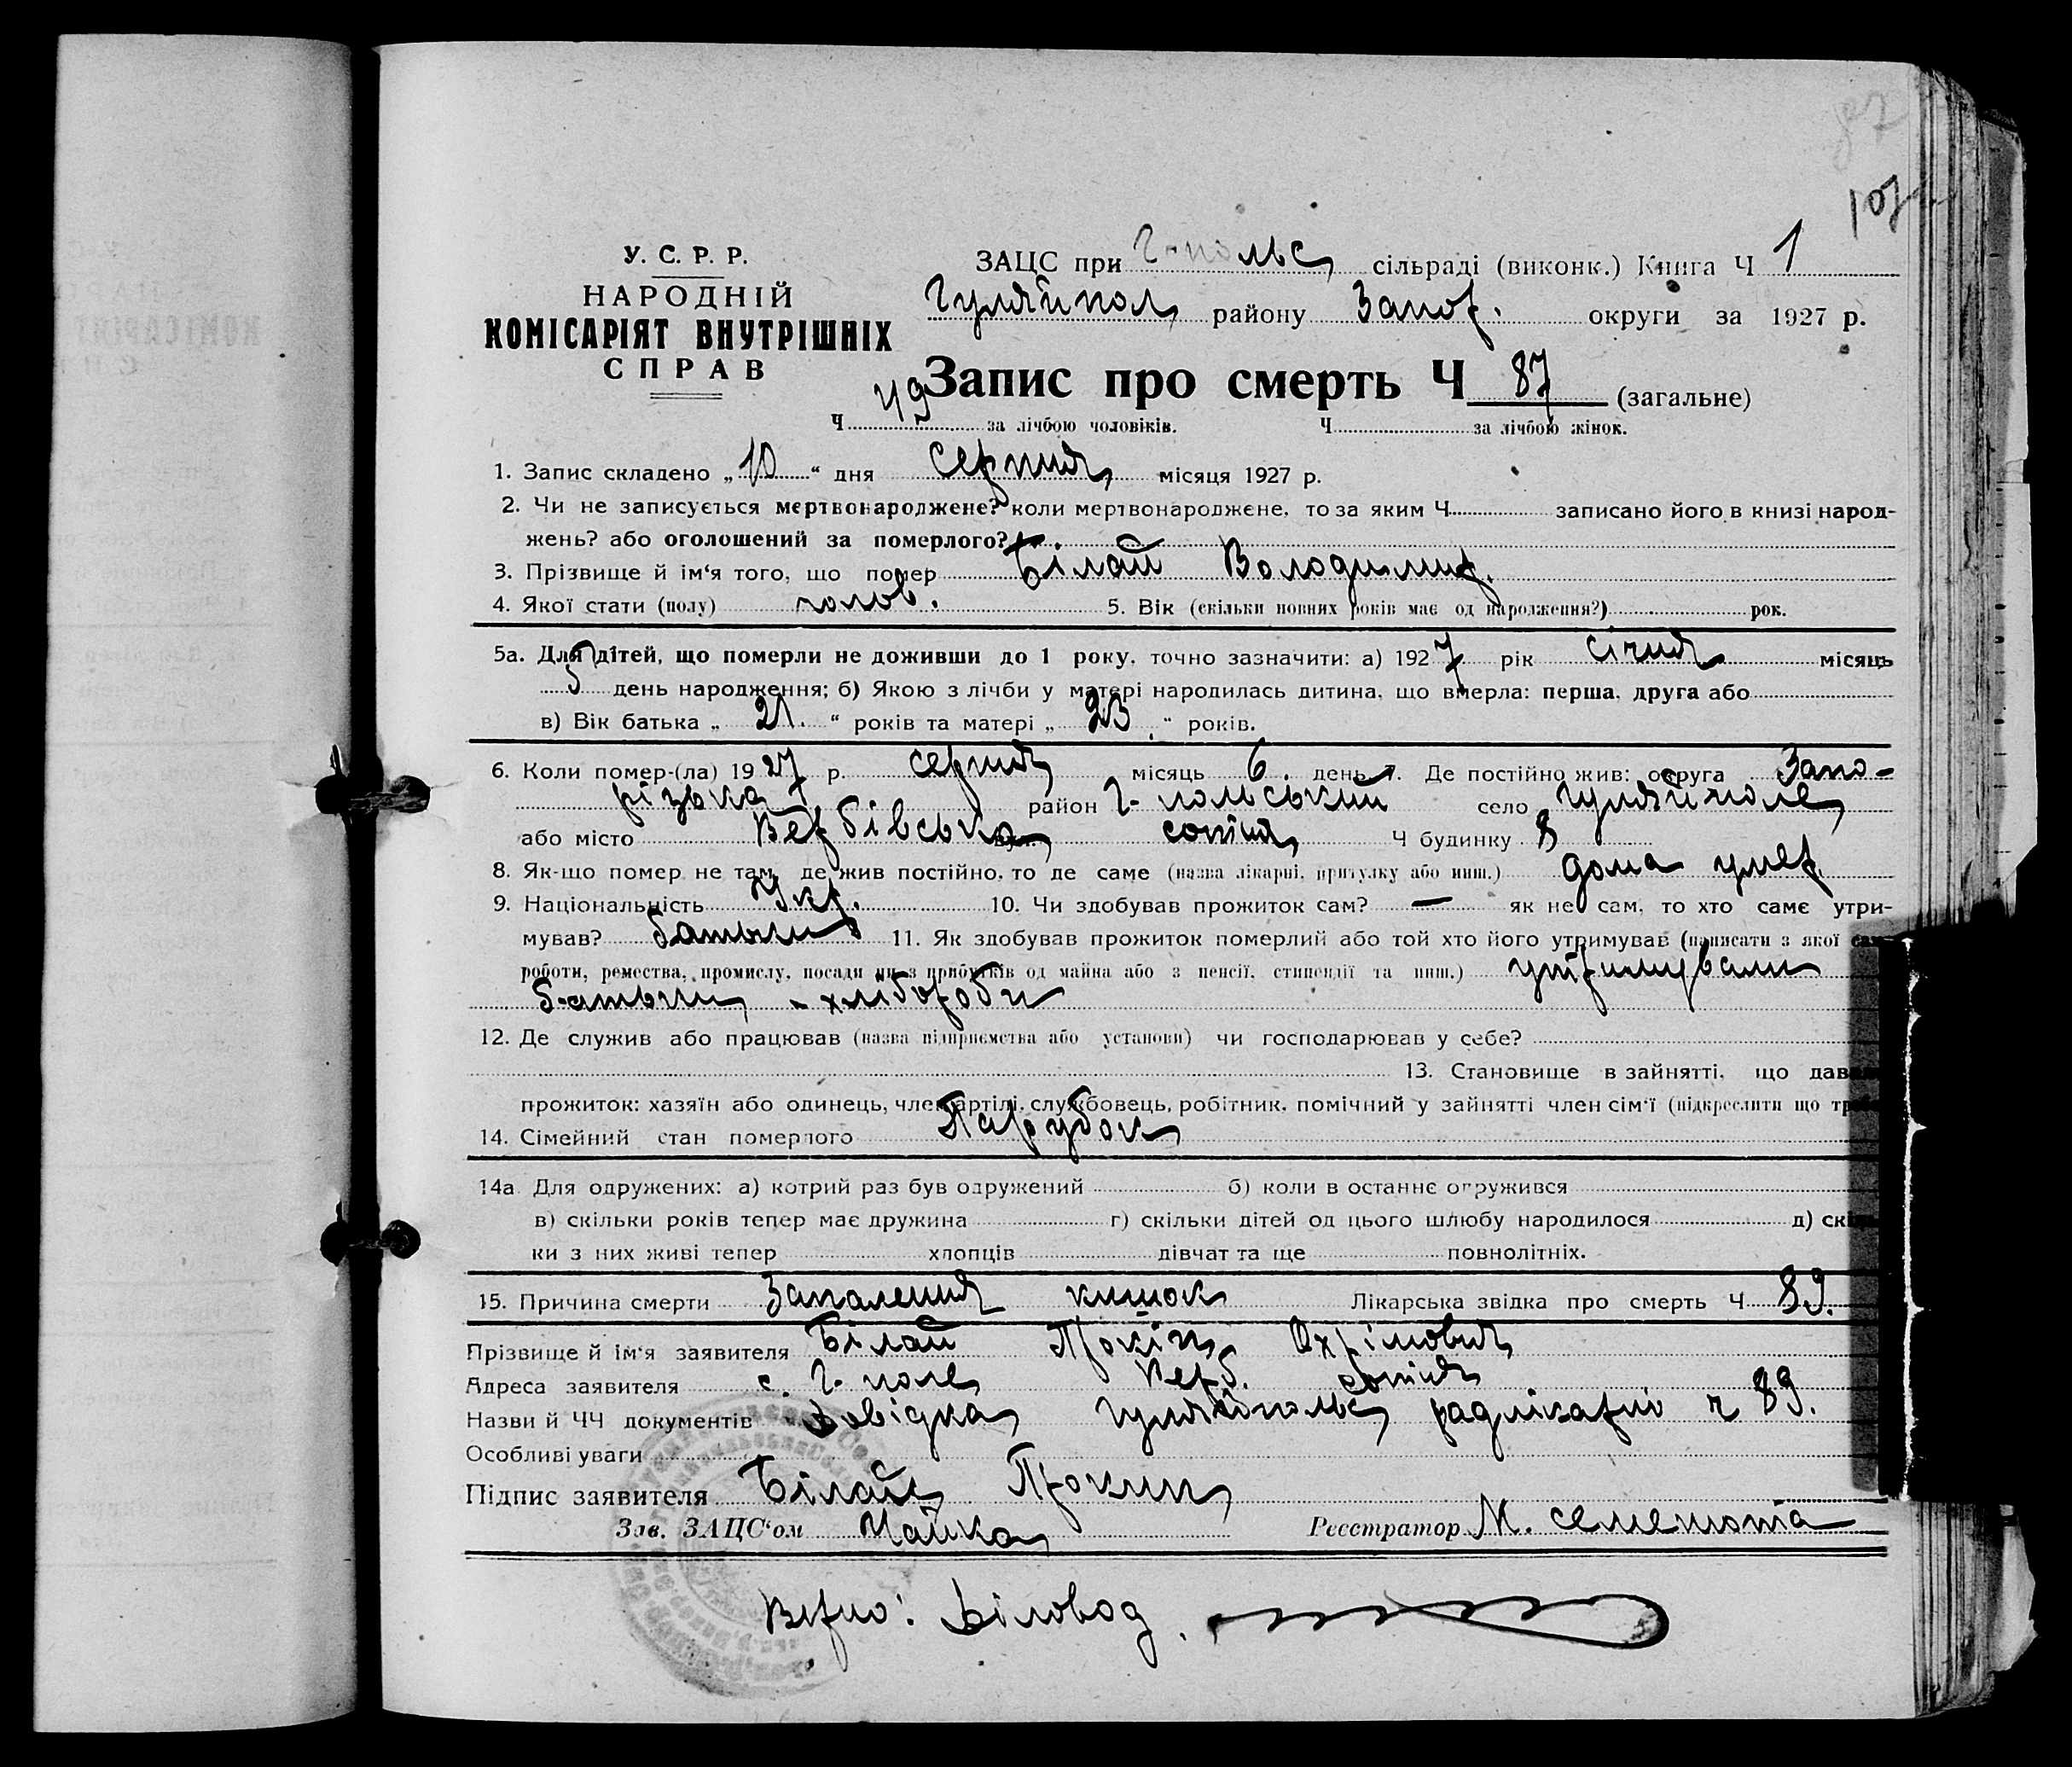 87
107
У. С. Р. Р.
НАРОДНІЙ
КОМІСАРІЯТ ВНУТРІШНІХ
СПРАВ
ЗАЦС при Г-польс сільраді (виконк.) Книга Ч 1
Гуляйпол району Запор. округи за 1927 р.
Запис про смерть Ч 87 (загальне)
Ч 49 за лічбою чоловіків. Ч за лічбою жінок.
1. Запис складено „10“ дня серпня місяця 1927 р.
2. Чи не записується мертвонароджене? коли мертвонароджене, то за яким Ч записано його в книзі народ-
жень? або оголошений за померлого?
3. Прізвище й ім‘я того, що помер Білай Володимир.
4. Якої стати (полу) чолов. 5. Вік (скільки повних років має од народження?) рок.
5а. Для дітей, що померли не доживши до 1 року, точно зазначити: а) 1927 рік січня місяць
5 день народження; б) Якою з лічби у матері народилась дитина, що вмерла: перша, друга або
в) Вік батька „21.“ років та матері „23.“ років.
6. Коли помер-(ла) 1927 р. серпня місяць 6. день 7. Де постійно жив: округа Запо-
різька район Г-польський село Гуляйполе
або місто Вербівська вул. сотня Ч будинку 8
8. Як-що помер не там, де жив постійно, то де саме (назва лікарні, притулку або инш.) дома умер
9. Національність Укр. 10. Чи здобував прожиток сам? — як не сам, то хто саме утри-
мував? батьки 11. Як здобував прожиток померлий або той хто його утримував (написати з якої
роботи, ремества, промислу, посади чи з прибутків од майна або з пенсії, стипендії та инш.) утримували
батьки - хлібороби
12. Де служив або працював (назва підприємства або установи) чи господарював у себе?
13. Становище в зайнятті, що дав
прожиток: хазяїн або одинець, член артілі, службовець, робітник, помічний у зайнятті член сім‘ї (підкреслити що тр
14. Сімейний стан померлого Парубок
14а Для одружених: а) котрий раз був одружений б) коли в останнє одружився
в) скільки років тепер має дружина г) скільки дітей од цього шлюбу народилося д) скі
ки з них живі тепер хлопців дівчат та ще повнолітніх.
15. Причина смерти Запалення кишок Лікарська звідка про смерть Ч 89.
Прізвище й ім‘я заявителя Білай Прокіп Охрімович
Адреса заявителя с. Г-поле Верб. сотня
Назви й ЧЧ документів Довідка Гуляйпольс радлікарні ч 89.
Особливі уваги
Підпис заявителя Білай Прокип
Зав. ЗАЦС‘ом Чайка Реєстратор М. Семенюта
Верно: Біловод